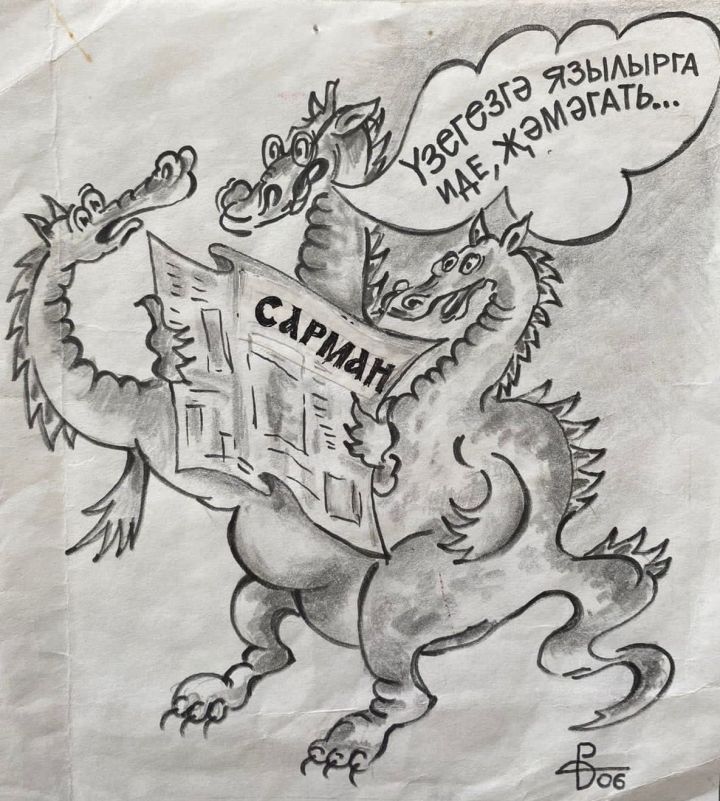 Үзегезгә язылырга
иде, җәмәгать...
САРМАН
06